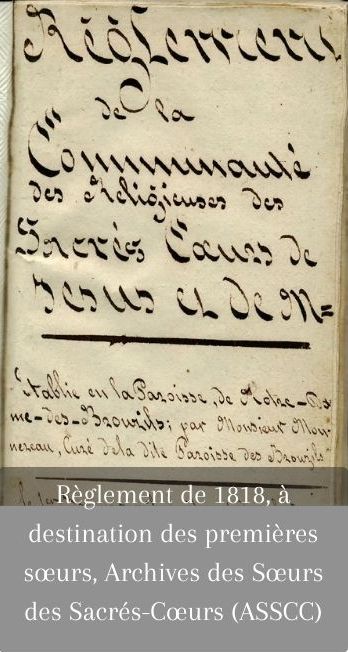 Réglement
de la
Communauté
des Religieuses des
Sacrés Cœurs de
Jesus et de M=
Etablie en la Paroisse de Notre-Da
me-des-Brouzils; par Monsieur Mon-
nereau, Curé de la dite Paroisse des Brouzils
Règlement de 1818, à
destination des premières
sœurs, Archives des Sœurs
des Sacrés-Cœurs (ASSCC)